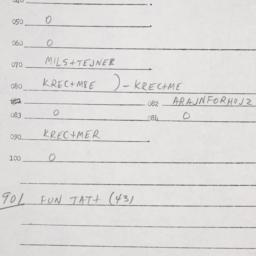 050 0
060 0
070 MILS+EJNER
080 KREC+MBE ) - KREC+ME
082 ARAJNFORHOJZ
083 0 084 0
090 KREC+MER
100 0
90/ FUN TAT+ (43)